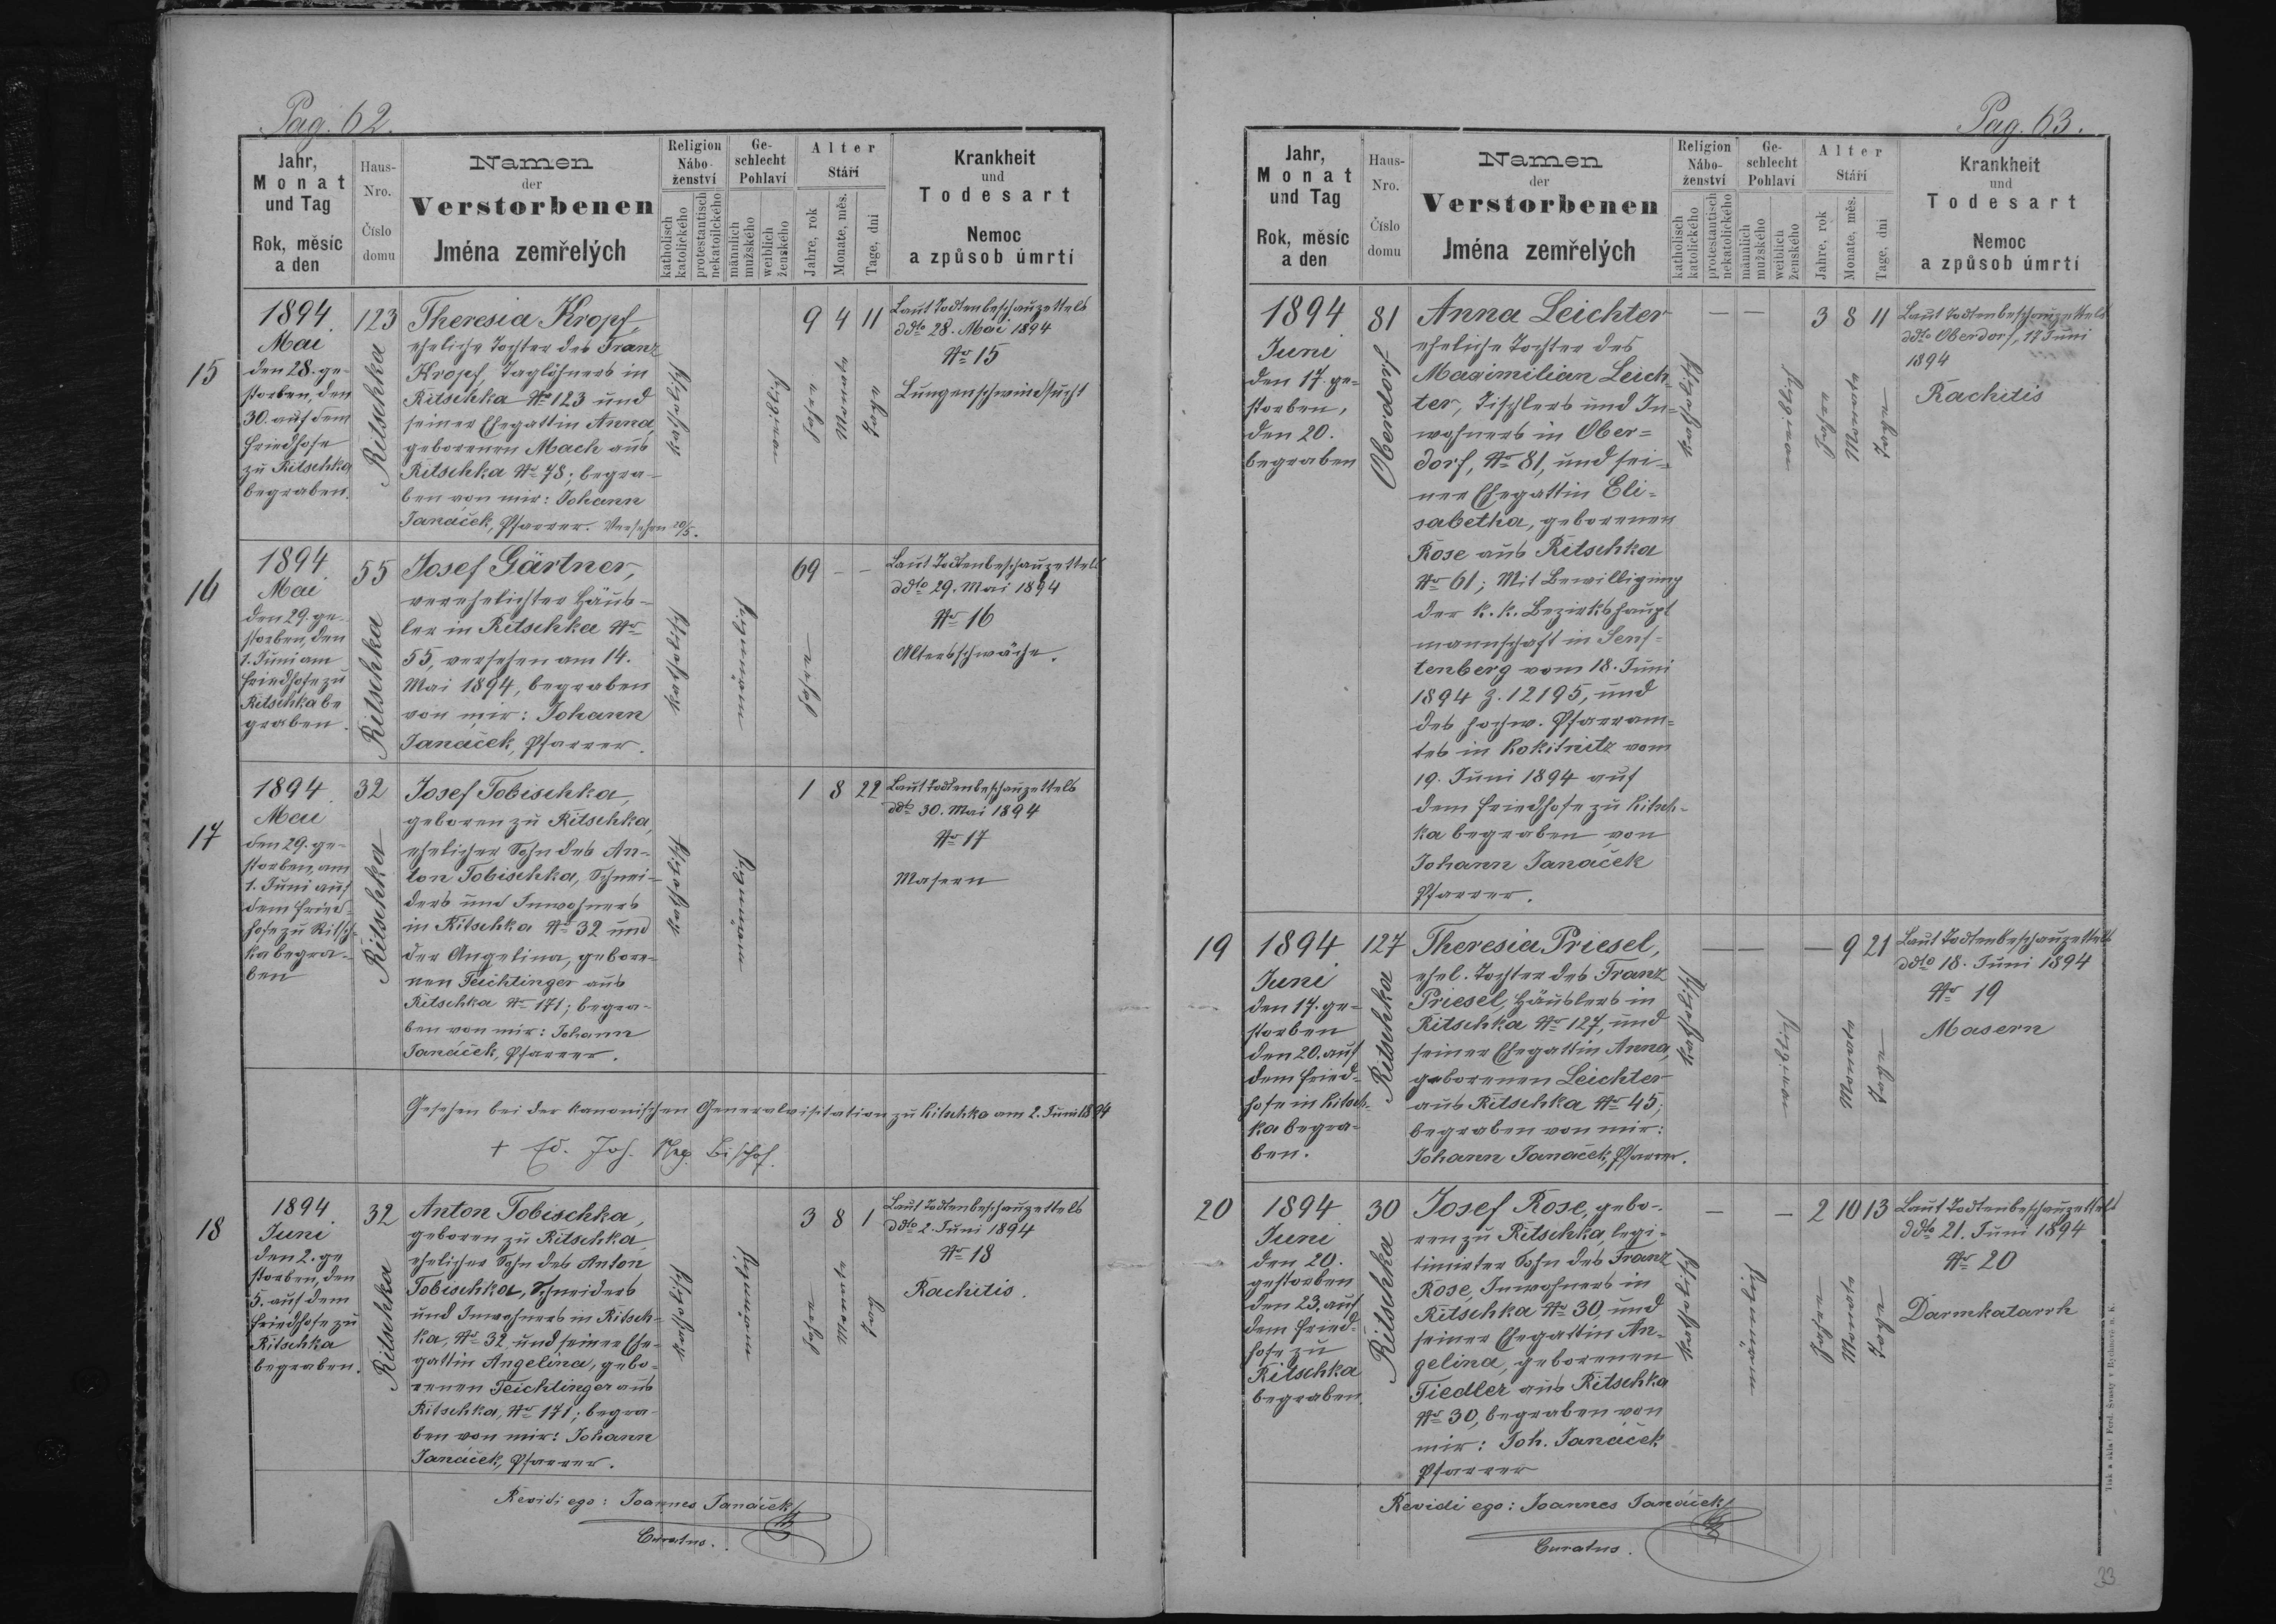 Pag. 62.
Jahr,
Monat
und Tag
Rok, měsíc
a den
Haus-
Nro.
Číslo
domu
Namen
der
Verstorbenen
Jména zemřelých
Religion
Nábo-
ženství
katholisch
katolického
protestantisch
nekatolického
Ge-
schlecht
Pohlaví
männlich
mužského
weiblich
ženského
Alter
Stáří
Jahre, rok
Monate, měs.
Tage, dni
Krankheit
und
Todesart
Nemoc
a způsob úmrtí
15
1894
Mai
den 28. ge-
storben, den
30. auf dem
Friedhofe
zu Ritschka
begraben.
123
Ritschka
Theresia Kropf,
eheliche Tochter des Franz
Kropf, Taglöhners in
Ritschka No 123 und
seiner Ehegattin Anna,
geborenen Mach aus
Ritschka No 78; begra-
ben von mir: Johann
Janáček, Pfarrer. Versehen 20/5.
katholisch
weiblich
9 4 11
Jahre
Monate
Tage
Laut Todtenbeschauzettels
ddto 28. Mai 1894
No 15
Lungenschwindsucht
16
1894
Mai
den 29. ge-
storben, den
1. Juni am
Friedhofe zu
Ritschka be
graben.
55
Ritschka
Josef Gärtner,
verehelichter Häus-
ler in Ritschka No
55, versehen am 14.
Mai 1894, begraben
von mir: Johann
Janáček, Pfarrer.
katholisch
männlich
69 - -
Jahre
Laut Todtenbeschauzettels
ddto 29. Mai 1894
No 16
Altersschwäche.
17
1894
Mai
den 29. ge-
storben, am
1. Juni auf
dem Fried-
hofe zu Ritsch-
ka begra-
ben
32
Ritschka
Josef Tobischka,
geboren zu Ritschka,
ehelicher Sohn des An-
ton Tobischka, Schnei-
ders und Inwohners
in Ritschka No 32 und
der Angelina, gebore-
nen Teichtinger aus
Ritschka No 171; begra-
ben von mir: Johann
Janáček, Pfarrer.
katholisch
männlich
1 8 22
Laut Todtenbeschauzettels
ddto 30. Mai 1894
No 17
Masern
Gesehen bei der kanonischen Generalvisitation zu Ritschka am 2. Juni 1894
+ Ed. Joh. Nep. Bischof.
18
1894
Juni
den 2. ge
storben, den
5. auf dem
Friedhofe zu
Ritschka
begraben.
32
Ritschka
Anton Tobischka,
geboren zu Ritschka,
ehelicher Sohn des Anton
Tobischka, Schneiders
und Inwohners in Ritsch-
ka, No 32, und seiner Ehe-
gattin Angelina, gebo-
renen Teichtinger aus
Ritschka, No 171; begra-
ben von mir: Johann
Janáček, Pfarrer.
katholisch
männlich
3 8 1
Jahre
Monate
Tag
Laut Todtenbeschauzettels
ddto 2. Juni 1894
No 18
Rachitis.
Revidi ego: Joannes Janáček
Curatus.
Pag. 63.
Jahr,
Monat
und Tag
Rok, měsíc
a den
Haus-
Nro.
Číslo
domu
Namen
der
Verstorbenen
Jména zemřelých
Religion
Nábo-
ženství
katholisch
katolického
protestantisch
nekatolického
Ge-
schlecht
Pohlaví
männlich
mužského
weiblich
ženského
Alter
Stáří
Jahre, rok
Monate, měs.
Tage, dni
Krankheit
und
Todesart
Nemoc
a způsob úmrtí
1894
Juni
den 17. ge-
storben,
den 20.
begraben
81
Oberdorf
Anna Leichter
eheliche Tochter des
Maximilian Leich-
ter, Tischlers und In-
wohners in Ober=
dorf, No 81, und sei-
ner Ehegattin Eli=
sabetha, geborenen
Rose aus Ritschka
No 61; Mit Bewilligung
der k. k. Bezirkshaupt
mannschaft in Senf=
tenberg vom 18. Juni
1894 Z. 12195, und
des hochw. Pfarram=
tes in Rokitnitz vom
19. Juni 1894 auf
dem Friedhofe zu Ritsch-
ka begraben von
Johann Janáček
Pfarrer.
katholisch
weiblich
— —
3 8 11
Jahre
Monate
Tage
Laut Todtenbeschauzettels
ddto Oberdorf, 17 Juni
1894
Rachitis
19
1894
Juni
den 17. ge-
storben
den 20. auf
dem Fried-
hofe in Ritsch-
ka begra-
ben.
127
Ritschka
Theresia Priesel,
ehel. Tochter des Franz
Priesel, Häuslers in
Ritschka No 127, und
seiner Ehegattin Anna,
geborenen Leichter
aus Ritschka No 45;
begraben von mir:
Johann Janáček, Pfarrer.
katholisch
weiblich
— — — 9 21
Monate
Tage
Laut Todtenbeschauzettels
ddto 18. Juni 1894
No 19
Masern
20
1894
Juni
den 20.
gestorben
den 23. auf
dem Fried-
hofe zu
Ritschka
begraben.
30
Ritschka
Josef Rose, gebo-
ren zu Ritschka, legi-
timirter Sohn des Franz
Rose, Inwohners in
Ritschka No 30, und
seiner Ehegattin An-
gelina, geborenen
Fiedler aus Ritschka
No 30, begraben von
mir: Joh. Janáček
Pfarrer
katholisch
männlich
— — 2 10 13
Jahre
Monate
Tage
Laut Todtenbeschauzettels
ddto 21. Juni 1894
No 20
Darmkatarrh
Revidi ego: Joannes Janáček
Curatus.
Tisk a sklad Ferd. Švusty v Rychnově n. K.
33